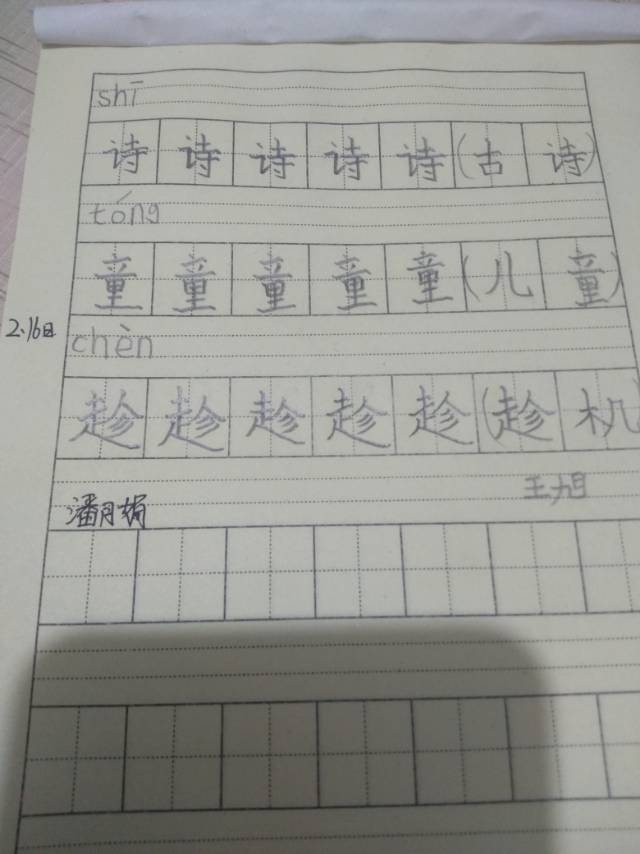 shī
诗 诗 诗 诗 诗 (古 诗)
tóng
童 童 童 童 童 (儿 童)
2.16日
chèn
趁 趁 趁 趁 趁 (趁 机
王旭
潘月娟